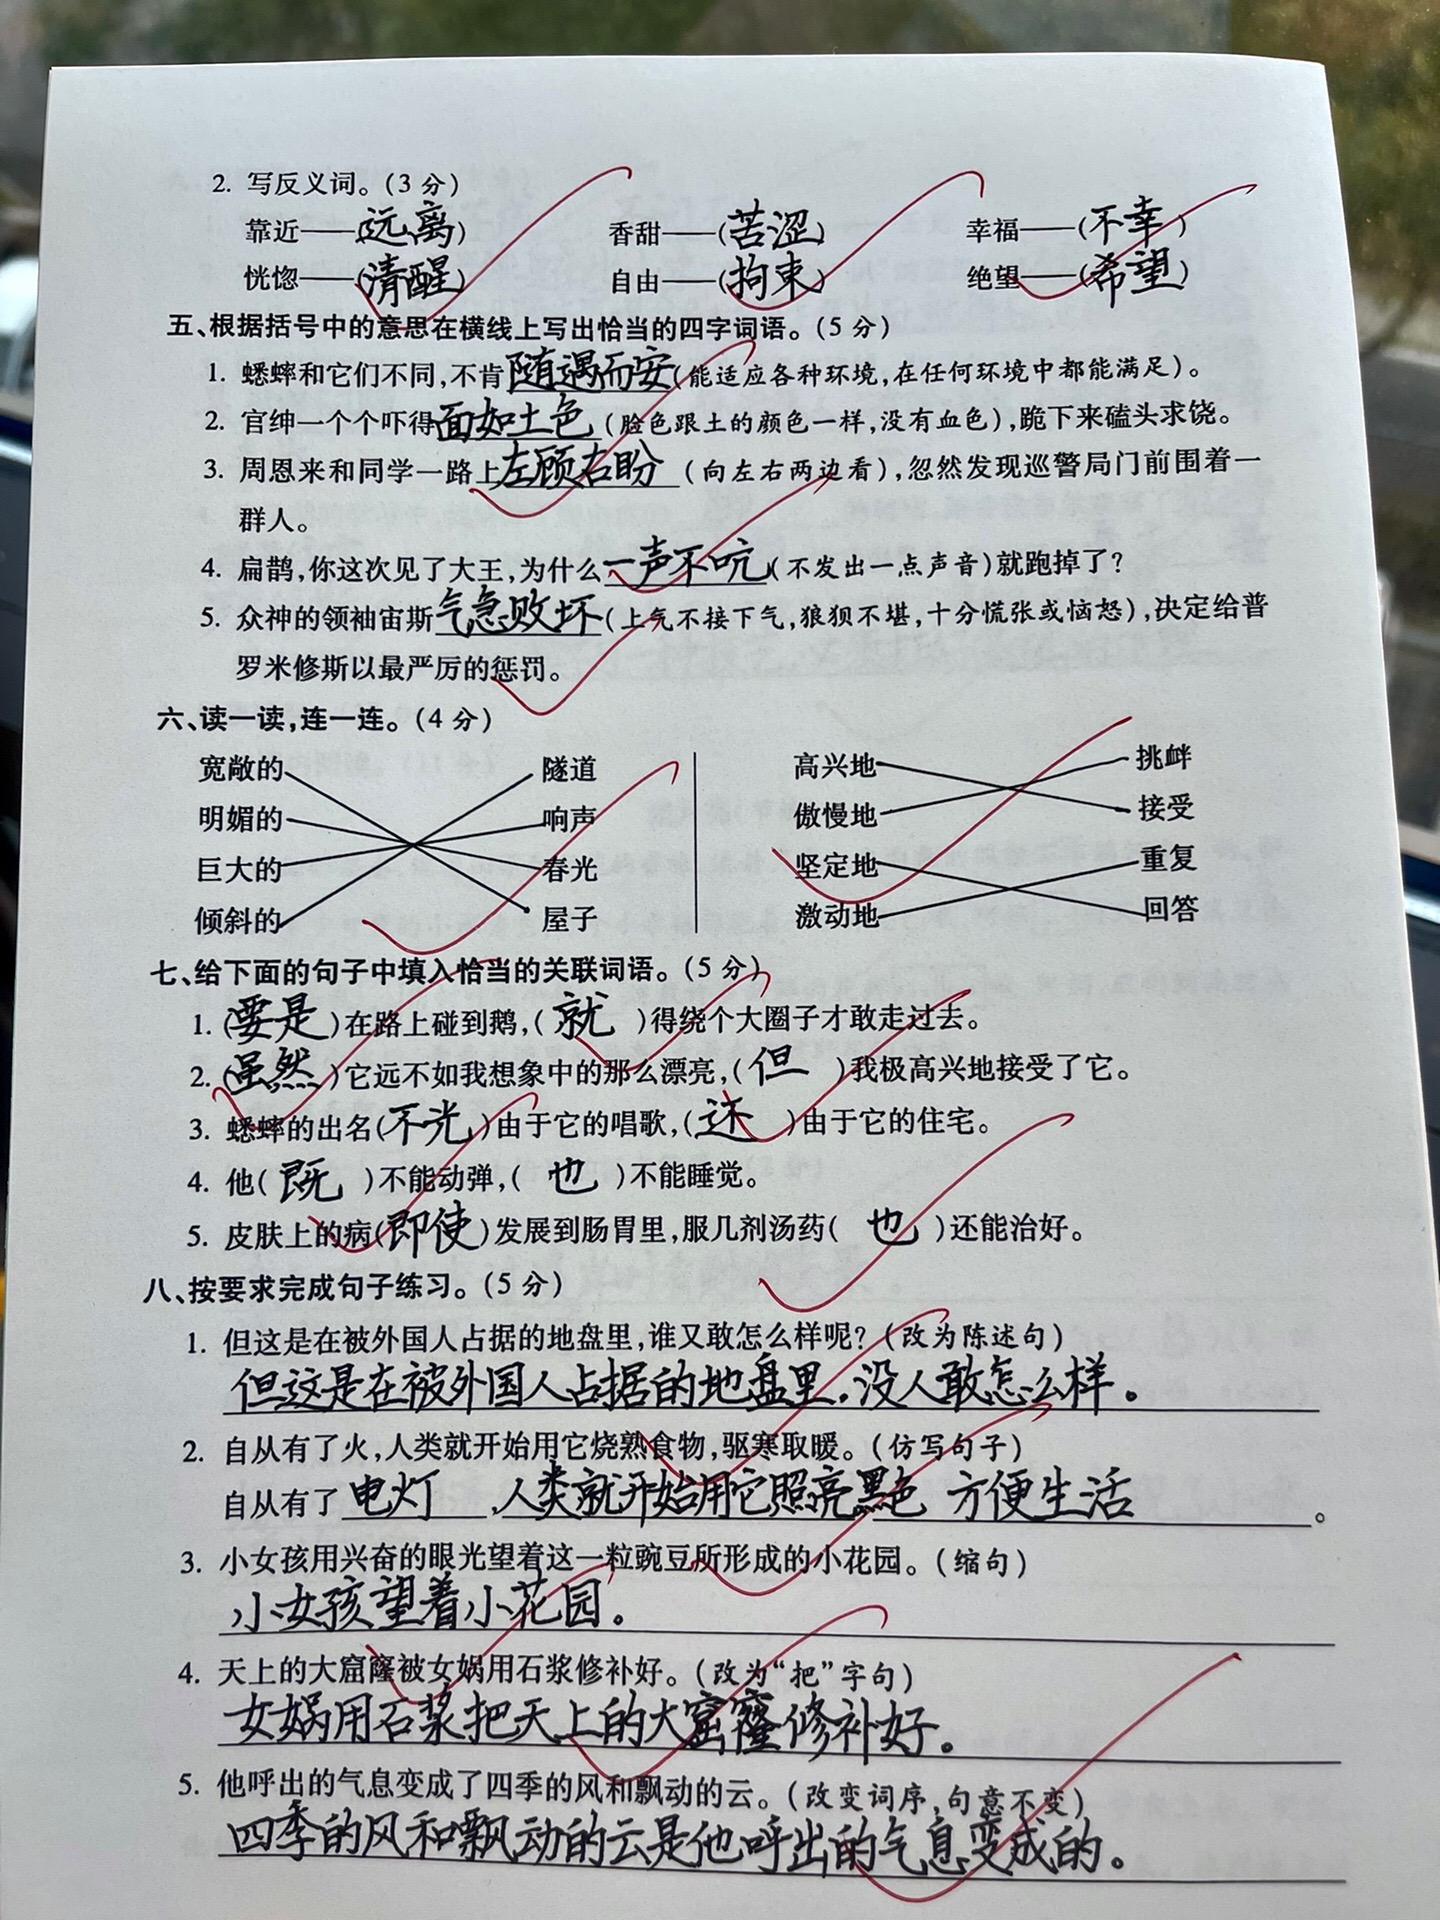 2. 写反义词。(3 分)
靠近——(远离) 香甜——(苦涩) 幸福——(不幸)
恍惚——(清醒) 自由——(拘束) 绝望——(希望)
五、根据括号中的意思在横线上写出恰当的四字词语。(5 分)
1. 蟋蟀和它们不同,不肯随遇而安(能适应各种环境,在任何环境中都能满足)。
2. 官绅一个个吓得面如土色(脸色跟土的颜色一样,没有血色),跪下来磕头求饶。
3. 周恩来和同学一路上左顾右盼(向左右两边看),忽然发现巡警局门前围着一
群人。
4. 扁鹊,你这次见了大王,为什么一声不吭(不发出一点声音)就跑掉了?
5. 众神的领袖宙斯气急败坏(上气不接下气,狼狈不堪,十分慌张或恼怒),决定给普
罗米修斯以最严厉的惩罚。
六、读一读,连一连。(4 分)
宽敞的 隧道 高兴地 挑衅
明媚的 响声 傲慢地 接受
巨大的 春光 坚定地 重复
倾斜的 屋子 激动地 回答
七、给下面的句子中填入恰当的关联词语。(5 分)
1. (要是)在路上碰到鹅,(就)得绕个大圈子才敢走过去。
2. (虽然)它远不如我想象中的那么漂亮,(但)我极高兴地接受了它。
3. 蟋蟀的出名(不光)由于它的唱歌,(还)由于它的住宅。
4. 他(既)不能动弹,(也)不能睡觉。
5. 皮肤上的病(即使)发展到肠胃里,服几剂汤药(也)还能治好。
八、按要求完成句子练习。(5 分)
1. 但这是在被外国人占据的地盘里,谁又敢怎么样呢?(改为陈述句)
但这是在被外国人占据的地盘里,没人敢怎么样。
2. 自从有了火,人类就开始用它烧熟食物,驱寒取暖。(仿写句子)
自从有了电灯,人类就开始用它照亮黑色 方便生活。
3. 小女孩用兴奋的眼光望着这一粒豌豆所形成的小花园。(缩句)
小女孩望着小花园。
4. 天上的大窟窿被女娲用石浆修补好。(改为“把”字句)
女娲用石浆把天上的大窟窿修补好。
5. 他呼出的气息变成了四季的风和飘动的云。(改变词序,句意不变)
四季的风和飘动的云是他呼出的气息变成的。